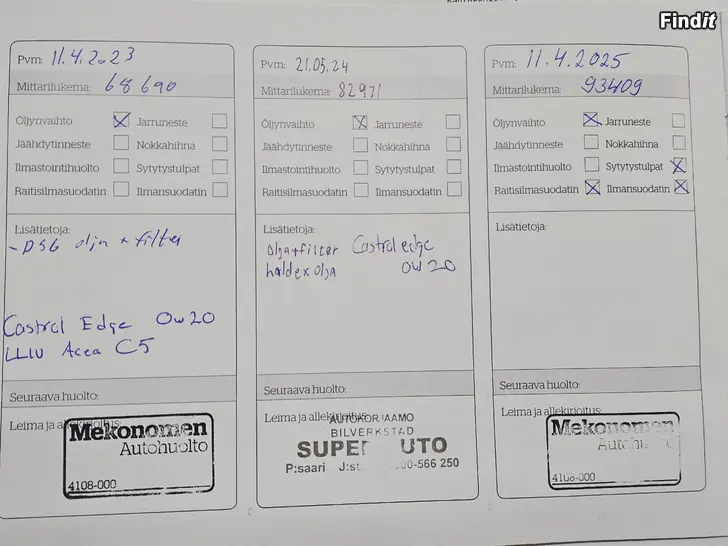 Findit
Pvm: 11.4.2023
Mittarilukema: 68690
Öljynvaihto Jarruneste
Jäähdytinneste Nokkahihna
Ilmastointihuolto Sytytystulpat
Raitisilmasuodatin Ilmansuodatin
Lisätietoja:
- DSG olja + filter
Castrol Edge 0w20
LLIV Acea C5
Seuraava huolto:
Leima ja allekirjoitus:
Mekonomen
Autohuolto
4108-000
Pvm: 21.05.24
Mittarilukema: 82971
Öljynvaihto Jarruneste
Jäähdytinneste Nokkahihna
Ilmastointihuolto Sytytystulpat
Raitisilmasuodatin Ilmansuodatin
Lisätietoja:
olja+filter Castrol edge
haldex olja 0w20
Seuraava huolto:
Leima ja allekirjoitus:
AUTOKORJAAMO
BILVERKSTAD
P:saari J:st. 00-566 250
Pvm: 11.4.2025
Mittarilukema: 93409
Öljynvaihto Jarruneste
Jäähdytinneste Nokkahihna
Ilmastointihuolto Sytytystulpat
Raitisilmasuodatin Ilmansuodatin
Lisätietoja:
Seuraava huolto:
Leima ja allekirjoitus:
Mekonomen
4108-000